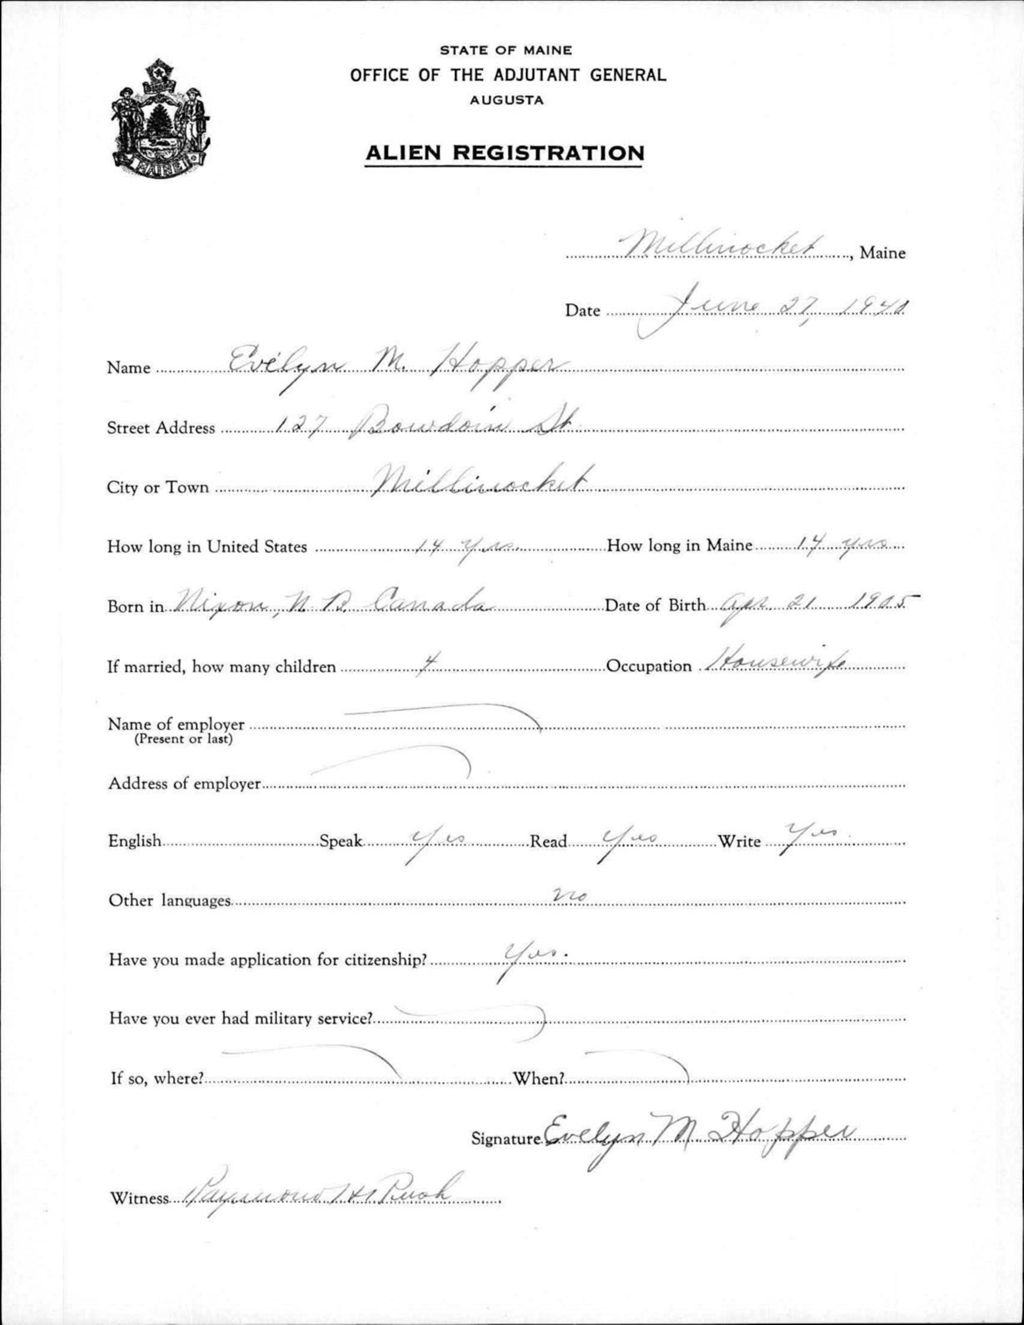 STATE OF MAINE
OFFICE OF THE ADJUTANT GENERAL
AUGUSTA
ALIEN REGISTRATION
MAINE
Millinocket, Maine
Date June 27, 1940
Name Evelyn M. Hopper
Street Address 127 Bowdoin St
City or Town Millinocket
How long in United States 14 yrs. How long in Maine 14 yrs
Born in Nixon, N B Canada Date of Birth Apr 21 1905
If married, how many children 4 Occupation Housewife
Name of employer
(Present or last)
Address of employer
English Speak Yes Read Yes Write Yes
Other languages no
Have you made application for citizenship? Yes.
Have you ever had military service?
If so, where? When?
Signature Evelyn M Hopper
Witness Raymond H Rush